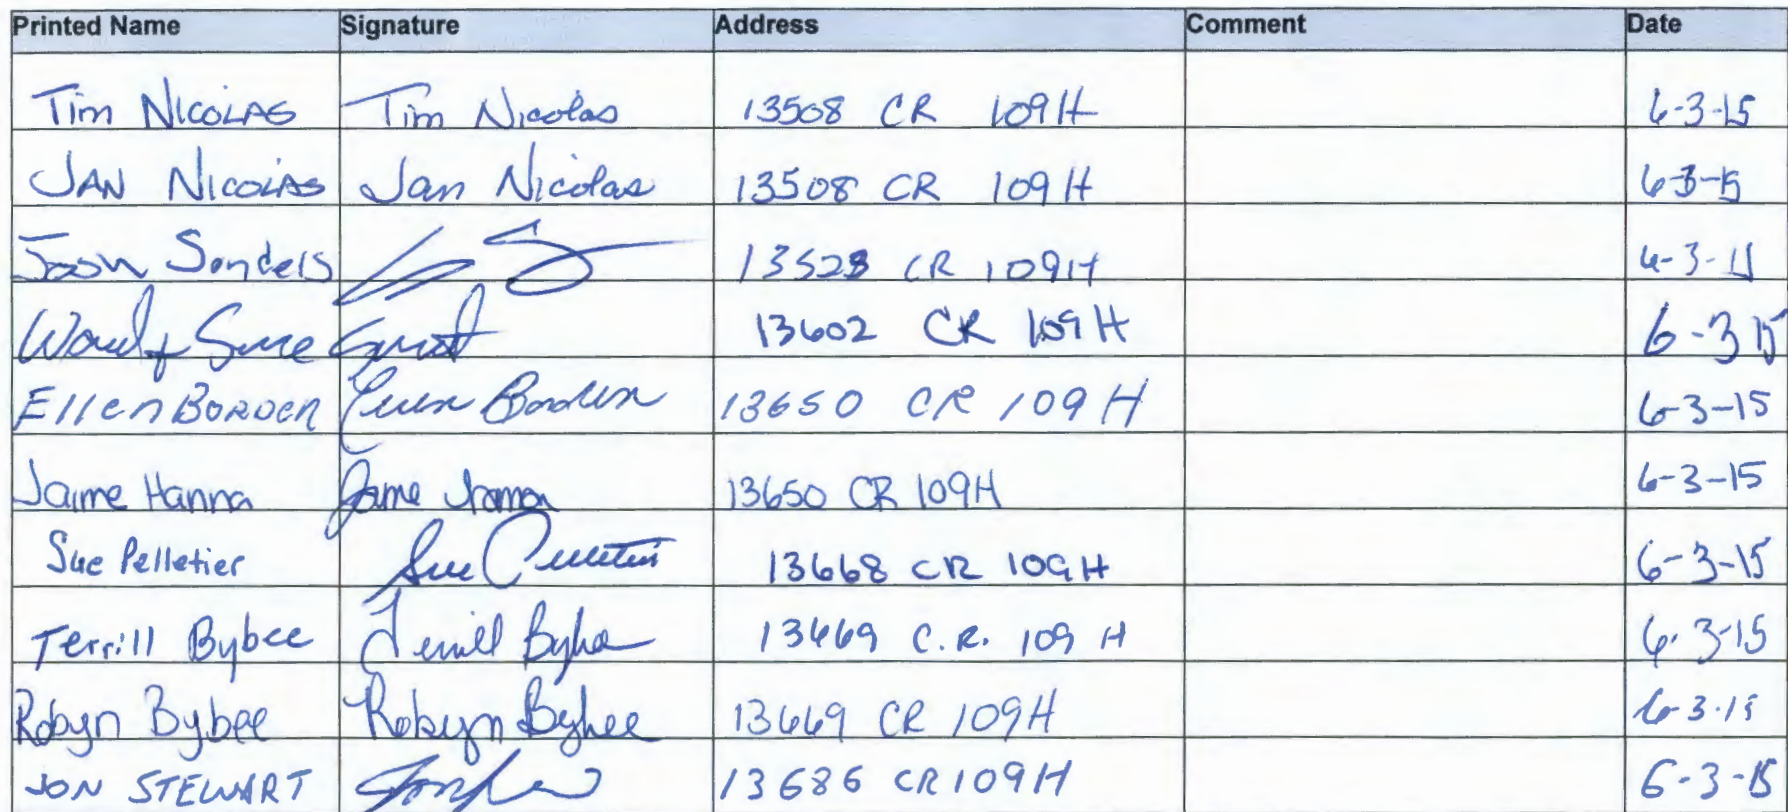 Printed Name Signature Address Comment Date
Tim NICOLAS Tim Nicolas 13508 CR 109H 6-3-15
JAN NICOLAS Jan Nicolas 13508 CR 109H 6-3-15
Sanders 13528 CR 109H 6-3-15
13602 CR 109H 6-3 15
Ellen BORDEN Ellen Borden 13650 CR 109 H 6-3-15
Jaime Hanna Jaime Hanna 13650 CR 109H 6-3-15
Sue Pelletier Sue Pelletier 13668 CR 109H 6-3-15
Terrill Bybee Terrill Bybee 13669 C.R. 109 H 6-3-15
Robyn Bybee Robyn Bybee 13669 CR 109H 6-3-15
JON STEWART 13686 CR 109H 6-3-15